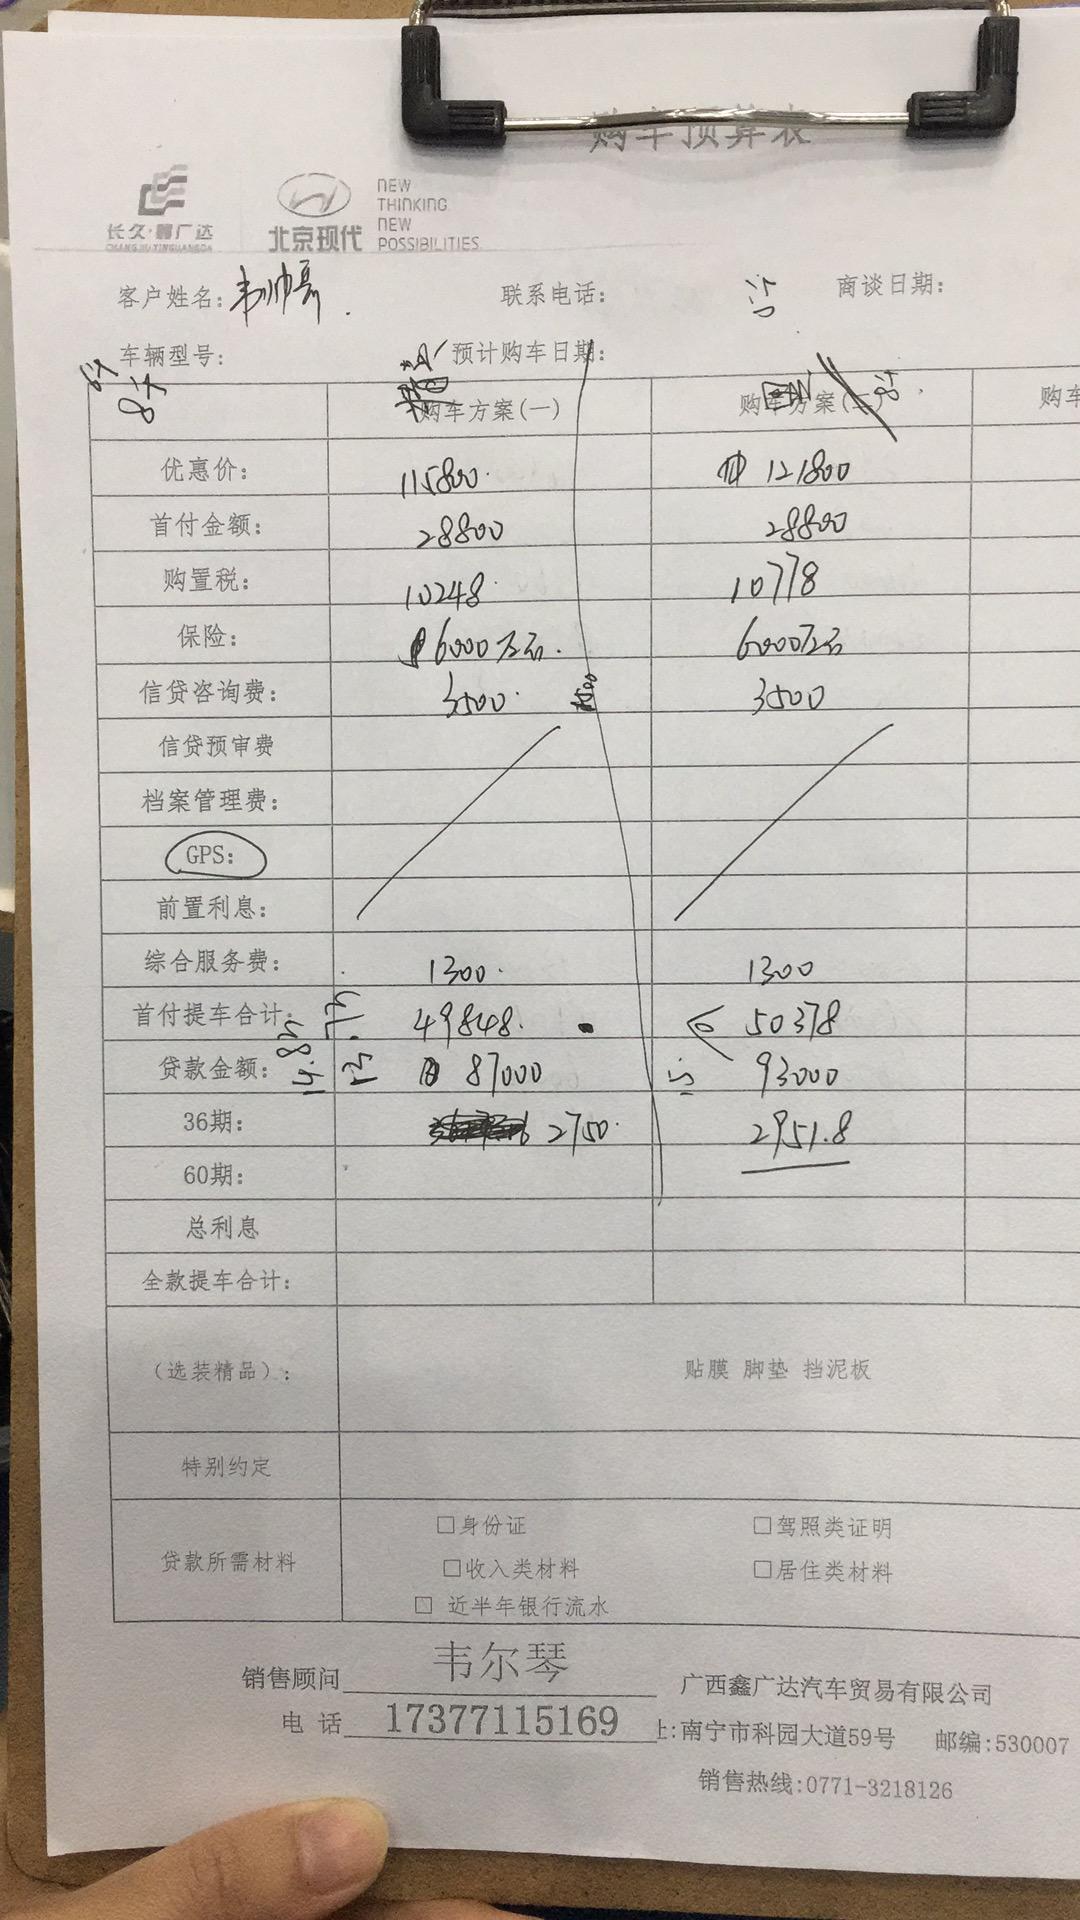 购车预算表
长久·鑫广达
CHANGJIU·XINGUANGDA
北京现代
NEW
THINKING
NEW
POSSIBILITIES
客户姓名:韦帅哥. 联系电话: 商谈日期:
车辆型号: 预计购车日期:
购车方案(一) 购车方案(二) 购车
优惠价: 115800. 121800
首付金额: 28800 28800
购置税: 10248. 10778
保险: 6000左右. 6000左右
信贷咨询费: 3500. 3500
信贷预审费
档案管理费:
GPS:
前置利息:
综合服务费: 1300. 1300
首付提车合计: 49848. 50378
贷款金额: 87000 93000
36期: 2750. 2951.8
60期:
总利息
全款提车合计:
(选装精品): 贴膜 脚垫 挡泥板
特别约定
贷款所需材料
□身份证 □驾照类证明
□收入类材料 □居住类材料
□ 近半年银行流水
销售顾问 韦尔琴 广西鑫广达汽车贸易有限公司
电 话 17377115169 址:南宁市科园大道59号 邮编:530007
销售热线:0771-3218126